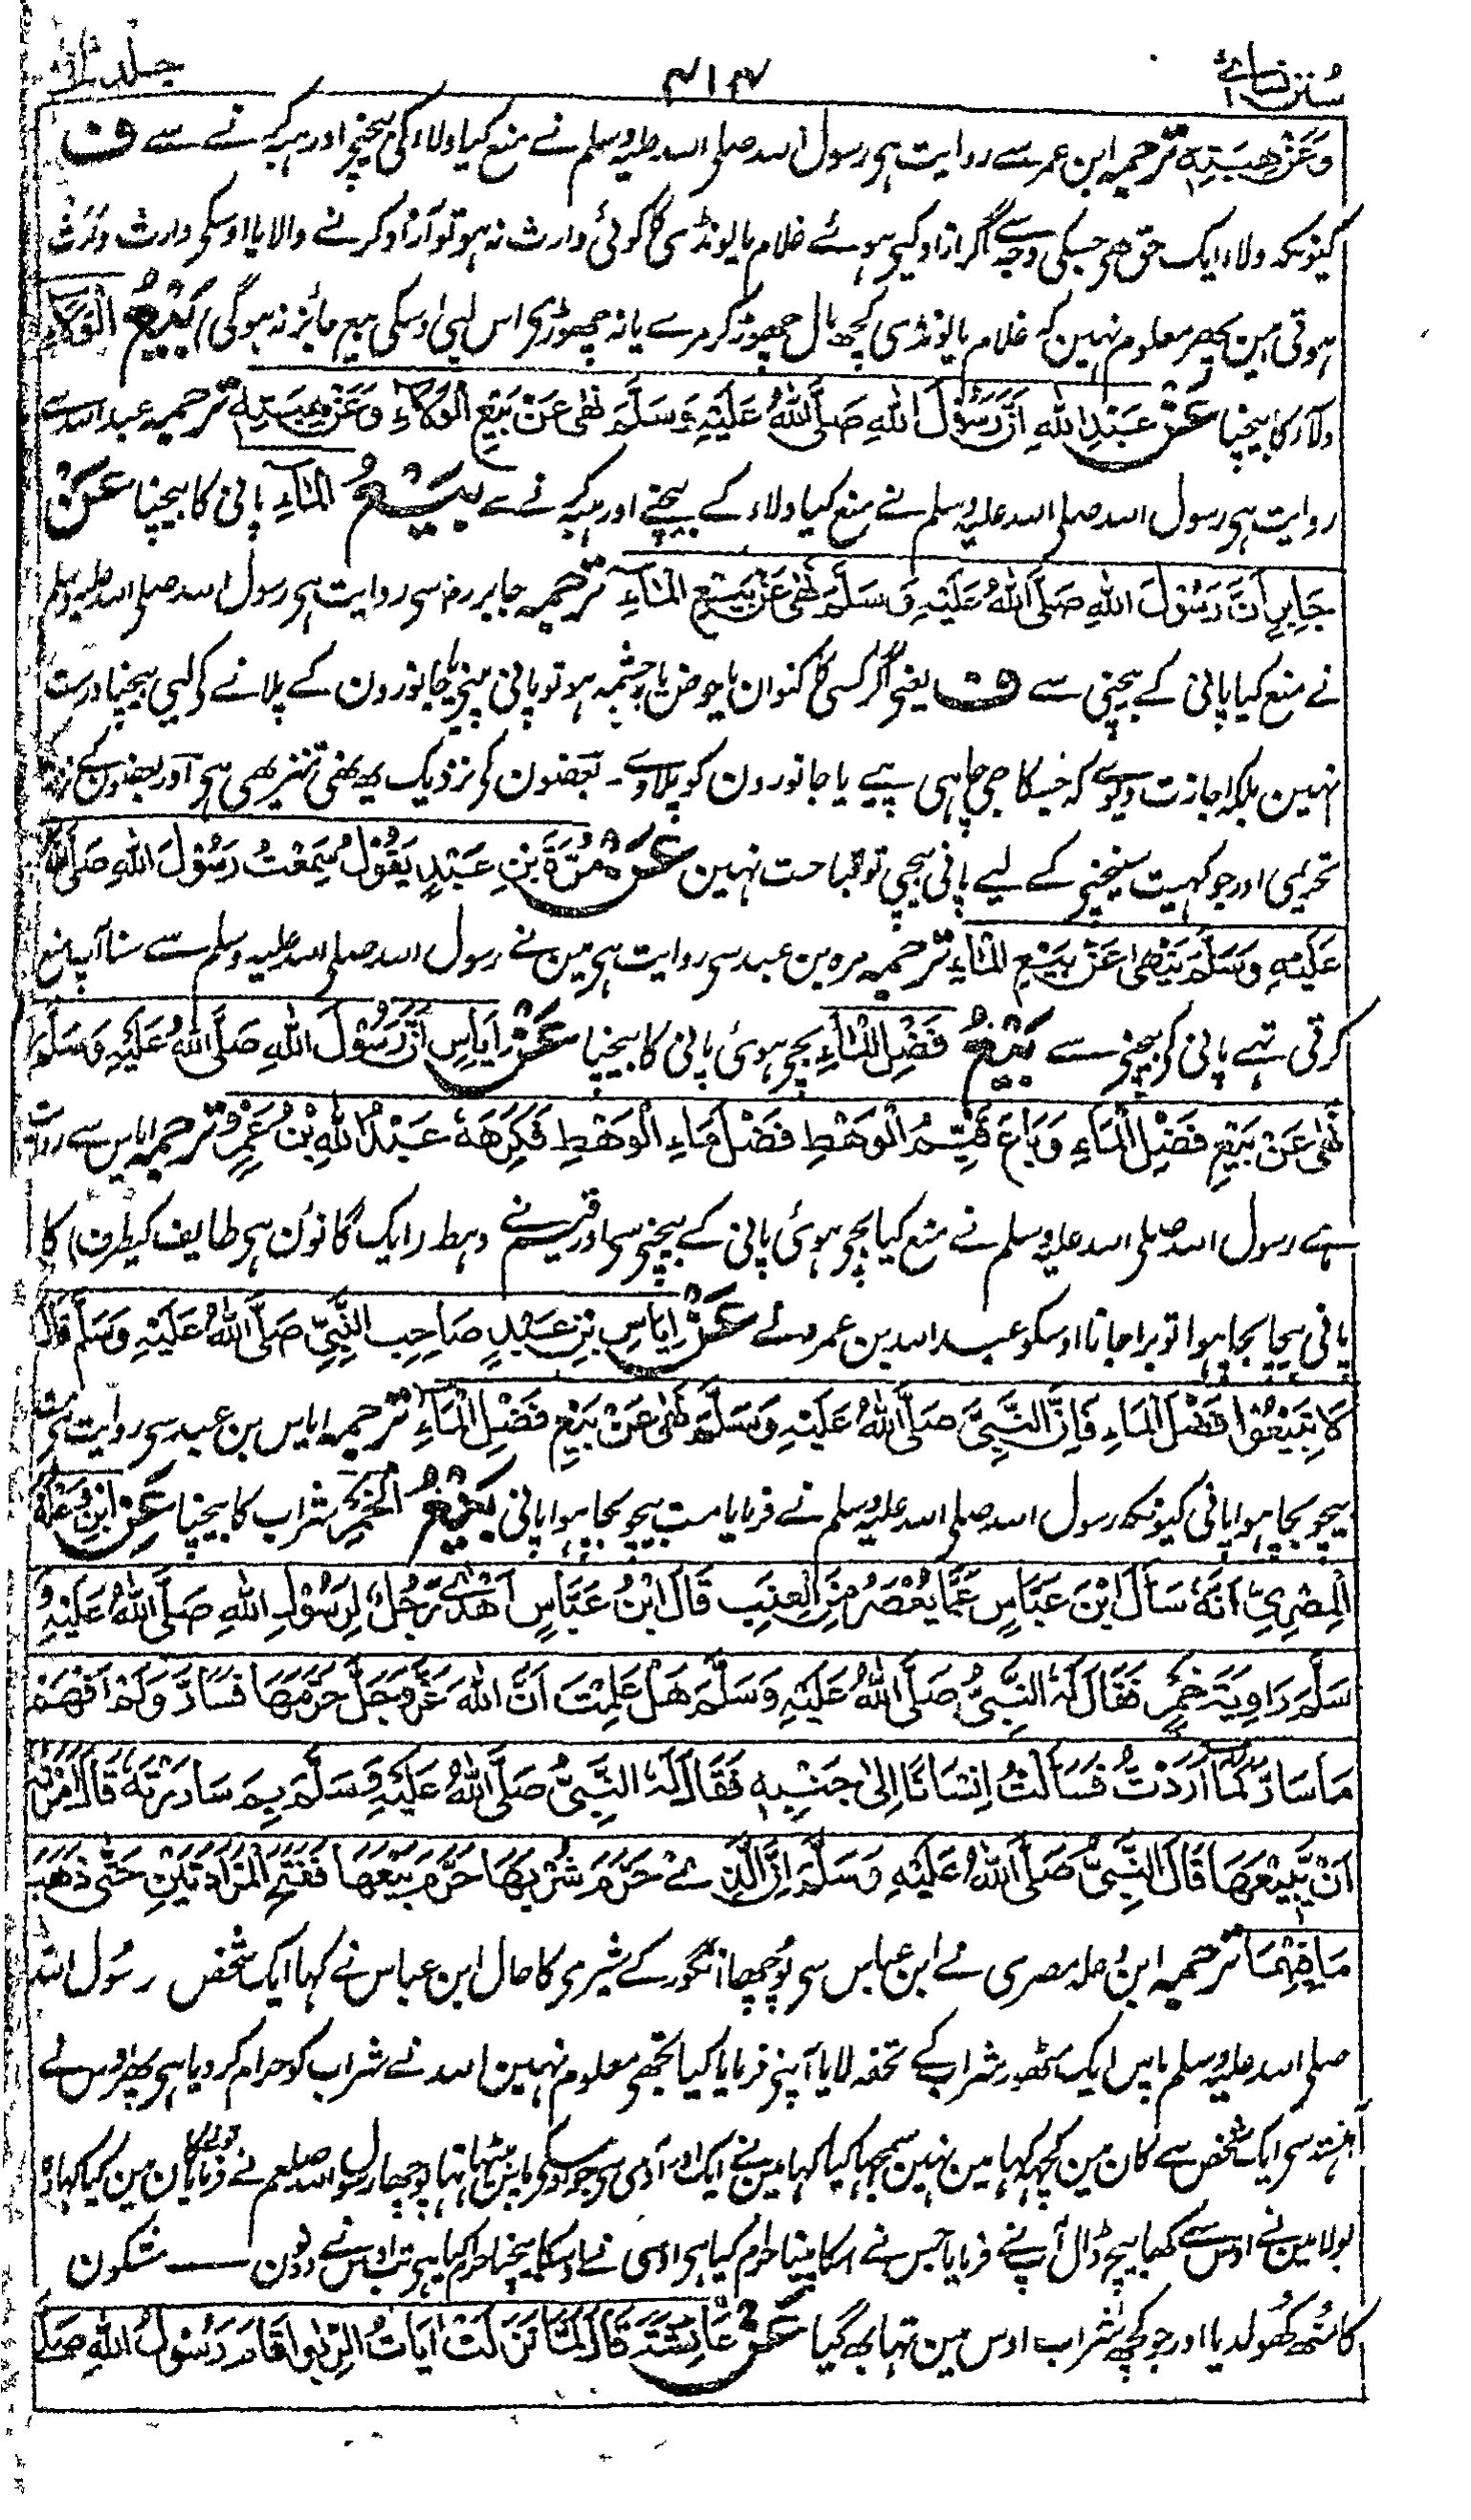 سُنن نسائی ۴۱۴ جلد ثانی
وَعَنْ هِبَتِهٖ ترجمہ ابن عمر سے روایت ہی رسول اللہ صلی اللہ علیہ وسلم نے منع کیا ولاء کی بیچنی اور ہبہ کرنے سے ف
کیونکہ ولاء ایک حق ھی جسکی وجہ سے اگر ازاد کیی ہوئے غلام یا لونڈی کا کوئی وارث نہ ہو تو آزاد کرنے والا یا اوسکی وارث وارث
ہوتی ہین پھر معلوم نہین کہ غلام یا لونڈی کچھ مال چھوڑ کر مرے یا نہ چھوڑی اس لیی اوسکی بیع جائز نہ ہوگی بَيْعُ الْوَلَاءِ
ولاء کا بیچنا عَنْ عَبْدِ اللهِ اَنَّ رَسُوْلَ اللهِ صَلَّى اللهُ عَلَيْهِ وَسَلَّمَ نَهٰى عَنْ بَيْعِ الْوَلَاءِ وَعَنْ هِبَتِهٖ ترجمہ عبد اللہ سے
روایت ہی رسول اللہ صلی اللہ علیہ وسلم نے منع کیا ولاء کے بیچنے اور ہبہ کرنے سے بَيْعُ الْمَاءِ پانی کا بیچنا عَنْ
جَابِرٍ اَنَّ رَسُوْلَ اللهِ صَلَّى اللهُ عَلَيْهِ وَسَلَّمَ نَهٰى عَنْ بَيْعِ الْمَاءِ ترجمہ جابر رض سی روایت ہی رسول اللہ صلی اللہ علیہ وسلم
نے منع کیا پانی کے بیچنی سے ف یعنی اگر کسی کا کنوان یا حوض یا چشمہ ہو تو پانی پینی یا جانورون کے پلانے کو لیی بیچنا درست
نہین بلکہ اجازت دیوے کہ جسکا جی چاہی پییے یا جانورون کو پلاوے ۔ بعضون کی نزدیک یہ نھی تنزیھی ہی اور بعضون کے نزدیک
تحریمی اور جو کھیت سینچنی کے لیے پانی بیچی تو قباحت نہین عَنْ مُرَّةَ بْنِ عَبْدٍ يَقُوْلُ سَمِعْتُ رَسُوْلَ اللهِ صَلَّى اللهُ
عَلَيْهِ وَسَلَّمَ يَنْهٰى عَنْ بَيْعِ الْمَاءِ ترجمہ مرہ بن عبد سی روایت ہی مین نے رسول اللہ صلی اللہ علیہ وسلم سے سنا آپ منع
کرتی تہے پانی کو بیچنی سے بَيْعُ فَضْلِ الْمَاءِ بچی ہوئی پانی کا بیچنا عَنْ اِيَاسٍ اَنَّ رَسُوْلَ اللهِ صَلَّى اللهُ عَلَيْهِ وَسَلَّمَ
نَهٰى عَنْ بَيْعِ فَضْلِ الْمَاءِ وَبَاعَ قَيِّمُ الْوَهْطِ فَضْلَ مَاءِ الْوَهْطِ فَكَرِهَهُ عَبْدُ اللهِ بْنُ عَمْرٍو ترجمہ ایاس سے روایت
ہے رسول اللہ صلی اللہ علیہ وسلم نے منع کیا بچی ہوئی پانی کے بیچنی سی اور قیم نے وہط (ایک گانوں ہی طایف کیطرف) کا
پانی بیچا بچا ہوا تو برا جانا اوسکو عبد اللہ بن عمر نے عَنْ اِيَاسِ بْنِ عَبْدٍ صَاحِبِ النَّبِيِّ صَلَّى اللهُ عَلَيْهِ وَسَلَّمَ قَالَ
لَا تَبِيْعُوْا فَضْلَ الْمَاءِ فَاِنَّ النَّبِيَّ صَلَّى اللهُ عَلَيْهِ وَسَلَّمَ نَهٰى عَنْ بَيْعِ فَضْلِ الْمَاءِ ترجمہ ایاس بن عبد سی روایت ہی مت
بیچو بچا ہوا پانی کیونکہ رسول اللہ صلی اللہ علیہ وسلم نے فرمایا مت بیچو بچا ہوا پانی بَيْعُ الْخَمْرِ شراب کا بیچنا عَنِ ابْنِ وَعْلَةَ
الْمِصْرِيِّ اَنَّهٗ سَاَلَ ابْنَ عَبَّاسٍ عَمَّا يُعْصَرُ مِنَ الْعِنَبِ قَالَ ابْنُ عَبَّاسٍ اَهْدٰى رَجُلٌ لِرَسُوْلِ اللهِ صَلَّى اللهُ عَلَيْهِ وَ
سَلَّمَ رَاوِيَةَ خَمْرٍ فَقَالَ لَهُ النَّبِيُّ صَلَّى اللهُ عَلَيْهِ وَسَلَّمَ هَلْ عَلِمْتَ اَنَّ اللهَ عَزَّوَجَلَّ حَرَّمَهَا فَسَارَّ وَلَمْ اَفْهَمْ
مَا سَارَّ كَمَا اَرَدْتُ فَسَاَلْتُ اِنْسَانًا اِلٰى جَنْبِهٖ فَقَالَ لَهُ النَّبِيُّ صَلَّى اللهُ عَلَيْهِ وَسَلَّمَ بِمَ سَارَرْتَهٗ قَالَ اَمَرْتُهٗ
اَنْ يَّبِيْعَهَا قَالَ النَّبِيُّ صَلَّى اللهُ عَلَيْهِ وَسَلَّمَ اِنَّ الَّذِيْ حَرَّمَ شُرْبَهَا حَرَّمَ بَيْعَهَا فَفَتَحَ الْمَزَادَتَيْنِ حَتّٰى ذَهَبَ
مَا فِيْهِمَا ترجمہ ابن وعلہ مصری نے ابن عباس سی پوچھا انگور کے شیری کا حال ابن عباس نے کہا ایک شخص رسول اللہ
صلی اللہ علیہ وسلم پاس ایک شراب کے تحفہ لایا آپنی فرمایا کیا تجھی معلوم نہین اللہ نے شراب کو حرام کر دیا ہی پھر اوس نے
آہستہ سی ایک شخص سے کان مین کچھ کہا مین نہین سمجہا کیا کہا مین نے ایک اور آدمی سی جو اوسکی پاس بیٹھا تہا پوچھا رسول اللہ صلعم نے فرمایا تونے کان مین کیا کہا وہ
بولا مین نے اوس سے کھا بیچ ڈال آپ نے فرمایا جس نے اسکا پینا حرام کیا ہی اوسی نے اوسکا بیچنا حرام کیا ہی تب اوس نے دونون مشکون
کا منھ کھولدیا اور جو کچھ شراب اوس مین تہا بھ گیا عَنْ عَائِشَةَ قَالَتْ لَمَّا نَزَلَتْ اٰيَاتُ الرِّبٰوا قَامَ رَسُوْلُ اللهِ صَلَّى